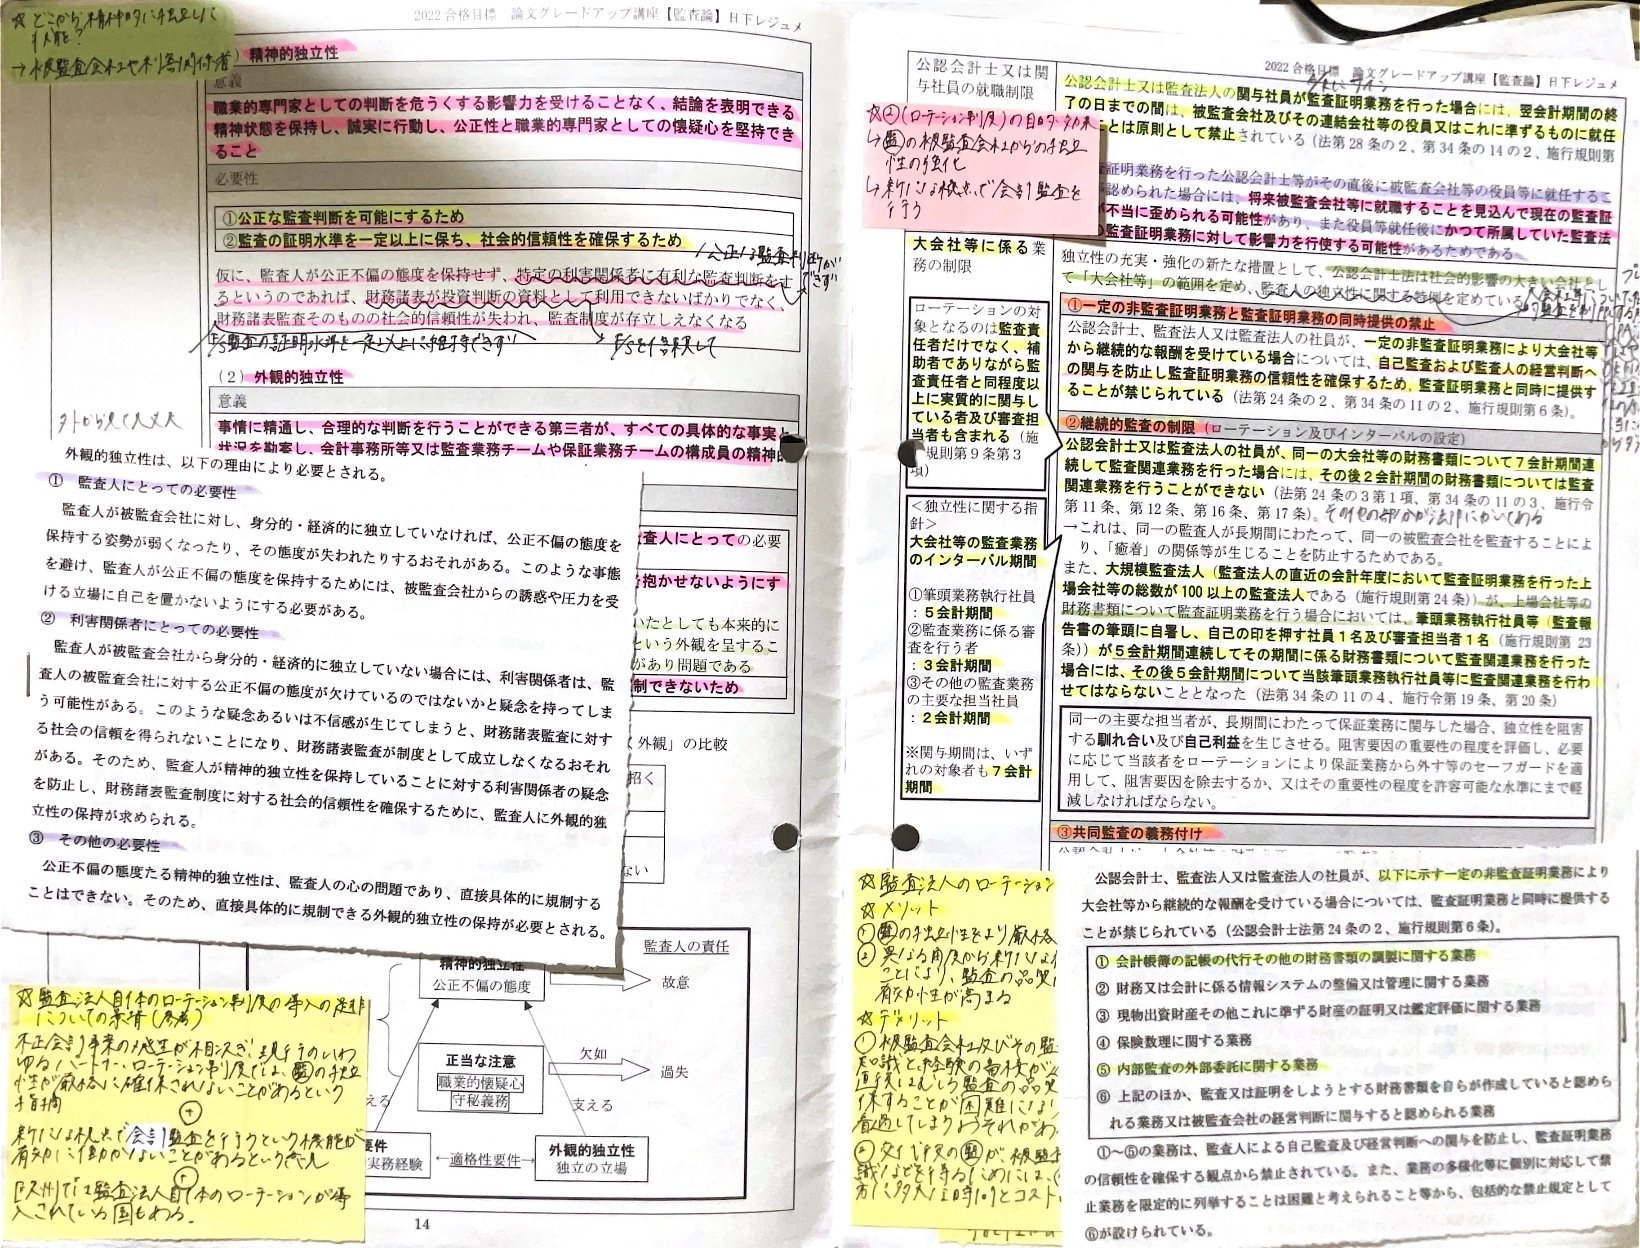 ☆どこから精神的に独立して
→被監査会社や利害関係者
2022 合格目標 論文グレードアップ講座【監査論】日下レジュメ
精神的独立性
意義
職業的専門家としての判断を危うくする影響力を受けることなく、結論を表明できる
精神状態を保持し、誠実に行動し、公正性と職業的専門家としての懐疑心を堅持でき
ること
必要性
①公正な監査判断を可能にするため
②監査の証明水準を一定以上に保ち、社会的信頼性を確保するため
仮に、監査人が公正不偏の態度を保持せず、特定の利害関係者に有利な監査判断をす
るというのであれば、財務諸表が投資判断の資料として利用できないばかりでなく、
財務諸表監査そのものの社会的信頼性が失われ、監査制度が存立しえなくなる
F/S監査の証明水準を一定以上に維持できず
F/Sを信頼して
(2) 外観的独立性
意義
外から見て大丈夫
事情に精通し、合理的な判断を行うことができる第三者が、すべての具体的な事実と
状況を勘案し、会計事務所等又は監査業務チームや保証業務チームの構成員の精神的
外観的独立性は、以下の理由により必要とされる。
① 監査人にとっての必要性
監査人が被監査会社に対し、身分的・経済的に独立していなければ、公正不偏の態度を
保持する姿勢が弱くなったり、その態度が失われたりするおそれがある。このような事態
を避け、監査人が公正不偏の態度を保持するためには、被監査会社からの誘惑や圧力を受
ける立場に自己を置かないようにする必要がある。
② 利害関係者にとっての必要性
監査人が被監査会社から身分的・経済的に独立していない場合には、利害関係者は、監
査人の被監査会社に対する公正不偏の態度が欠けているのではないかと疑念を持ってしま
う可能性がある。このような疑念あるいは不信感が生じてしまうと、財務諸表監査に対す
る社会の信頼を得られないことになり、財務諸表監査が制度として成立しなくなるおそれ
がある。そのため、監査人が精神的独立性を保持していることに対する利害関係者の疑念
を防止し、財務諸表監査制度に対する社会的信頼性を確保するために、監査人に外観的独
立性の保持が求められる。
③ その他の必要性
公正不偏の態度たる精神的独立性は、監査人の心の問題であり、直接具体的に規制する
ことはできない。そのため、直接具体的に規制できる外観的独立性の保持が必要とされる。
査人にとっての必要
抱かせないようにす
いたとしても本来的に
という外観を呈するこ
があり問題である
制できないため
外観」の比較
招く
ない
監査人の責任
精神的独立性
公正不偏の態度
故意
正当な注意
職業的懐疑心
守秘義務
欠如
過失
える
支える
要件
実務経験
←適格性要件→
外観的独立性
独立の立場
☆監査法人自体のローテーション制度の導入の是非
についての素描(参考)
不正会計事案の発生が相次ぎ、現行のいわ
ゆるパートナーローテーション制度では、監の独立
性が厳格に確保されないことがあるという
指摘
新たな視点で会計監査を行うという機能が
有効に働かないことがあるという意見
欧州では監査法人自体のローテーションが導
入されている国もある。
14
2022 合格目標 論文グレードアップ講座【監査論】日下レジュメ
公認会計士又は関
与社員の就職制限
公認会計士又は監査法人の関与社員が監査証明業務を行った場合には、翌会計期間の終
了の日までの間は、被監査会社及びその連結会社等の役員又はこれに準ずるものに就任
ことは原則として禁止されている(法第28条の2、第34条の14の2、施行規則第
証明業務を行った公認会計士等がその直後に被監査会社等の役員等に就任するこ
認められた場合には、将来被監査会社等に就職することを見込んで現在の監査証
が不当に歪められる可能性があり、また役員等就任後にかつて所属していた監査法
の監査証明業務に対して影響力を行使する可能性があるためである
☆②(ローテーション制度)の目的・効果
↳監の被監査会社からの独立
性の強化
↳新たな視点で会計監査を
行う
大会社等に係る業
務の制限
独立性の充実・強化の新たな措置として、公認会計士法は社会的影響の大きい会社とし
て「大会社等」の範囲を定め、監査人の独立性に関する特例を定めている
①一定の非監査証明業務と監査証明業務の同時提供の禁止
公認会計士、監査法人又は監査法人の社員が、一定の非監査証明業務により大会社等
から継続的な報酬を受けている場合については、自己監査および監査人の経営判断へ
の関与を防止し監査証明業務の信頼性を確保するため、監査証明業務と同時に提供す
ることが禁じられている(法第24条の2、第34条の11の2、施行規則第6条)。
②継続的監査の制限(ローテーション及びインターバルの設定)
公認会計士又は監査法人の社員が、同一の大会社等の財務書類について7会計期間連
続して監査関連業務を行った場合には、その後2会計期間の財務書類については監査
関連業務を行うことができない(法第24条の3第1項、第34条の11の3、施行令
第11条、第12条、第16条、第17条)。
→これは、同一の監査人が長期間にわたって、同一の被監査会社を監査することによ
り、「癒着」の関係等が生じることを防止するためである。
また、大規模監査法人(監査法人の直近の会計年度において監査証明業務を行った上
場会社等の総数が100以上の監査法人である(施行規則第24条))が、上場会社等の
財務書類について監査証明業務を行う場合においては、筆頭業務執行社員等(監査報
告書の筆頭に自署し、自己の印を押す社員1名及び審査担当者1名(施行規則第23
条))が5会計期間連続してその期間に係る財務書類について監査関連業務を行った
場合には、その後5会計期間について当該筆頭業務執行社員等に監査関連業務を行わ
せてはならないこととなった(法第34条の11の4、施行令第19条、第20条)
同一の主要な担当者が、長期間にわたって保証業務に関与した場合、独立性を阻害
する馴れ合い及び自己利益を生じさせる。阻害要因の重要性の程度を評価し、必要
に応じて当該者をローテーションにより保証業務から外す等のセーフガードを適
用して、阻害要因を除去するか、又はその重要性の程度を許容可能な水準にまで軽
減しなければならない。
③共同監査の義務付け
ローテーションの対
象となるのは監査責
任者だけでなく、補
助者でありながら監
査責任者と同程度以
上に実質的に関与し
ている者及び審査担
当者も含まれる(施
規則第9条第3
項)
<独立性に関する指
針>
大会社等の監査業務
のインターバル期間
①筆頭業務執行社員
:5会計期間
②監査業務に係る審
査を行う者
:3会計期間
③その他の監査業務
の主要な担当社員
:2会計期間
※関与期間は、いず
れの対象者も7会計
期間
☆監査法人のローテーション
☆メリット
①監の独立性をより厳格
②異なる角度から新たな
ことにより、監査の品質
有効性が高まる
☆デメリット
①被監査会社及びその監
知識と経験の蓄積が
公認会計士、監査法人又は監査法人の社員が、以下に示す一定の非監査証明業務により
大会社等から継続的な報酬を受けている場合については、監査証明業務と同時に提供する
ことが禁じられている(公認会計士法第24条の2、施行規則第6条)。
① 会計帳簿の記帳の代行その他の財務書類の調製に関する業務
② 財務又は会計に係る情報システムの整備又は管理に関する業務
③ 現物出資財産その他これに準ずる財産の証明又は鑑定評価に関する業務
④ 保険数理に関する業務
⑤ 内部監査の外部委託に関する業務
⑥ 上記のほか、監査又は証明をしようとする財務書類を自らが作成していると認めら
れる業務又は被監査会社の経営判断に関与すると認められる業務
①~⑤の業務は、監査人による自己監査及び経営判断への関与を防止し、監査証明業務
の信頼性を確保する観点から禁止されている。また、業務の多様化等に個別に対応して禁
止業務を限定的に列挙することは困難と考えられること等から、包括的な禁止規定として
⑥が設けられている。